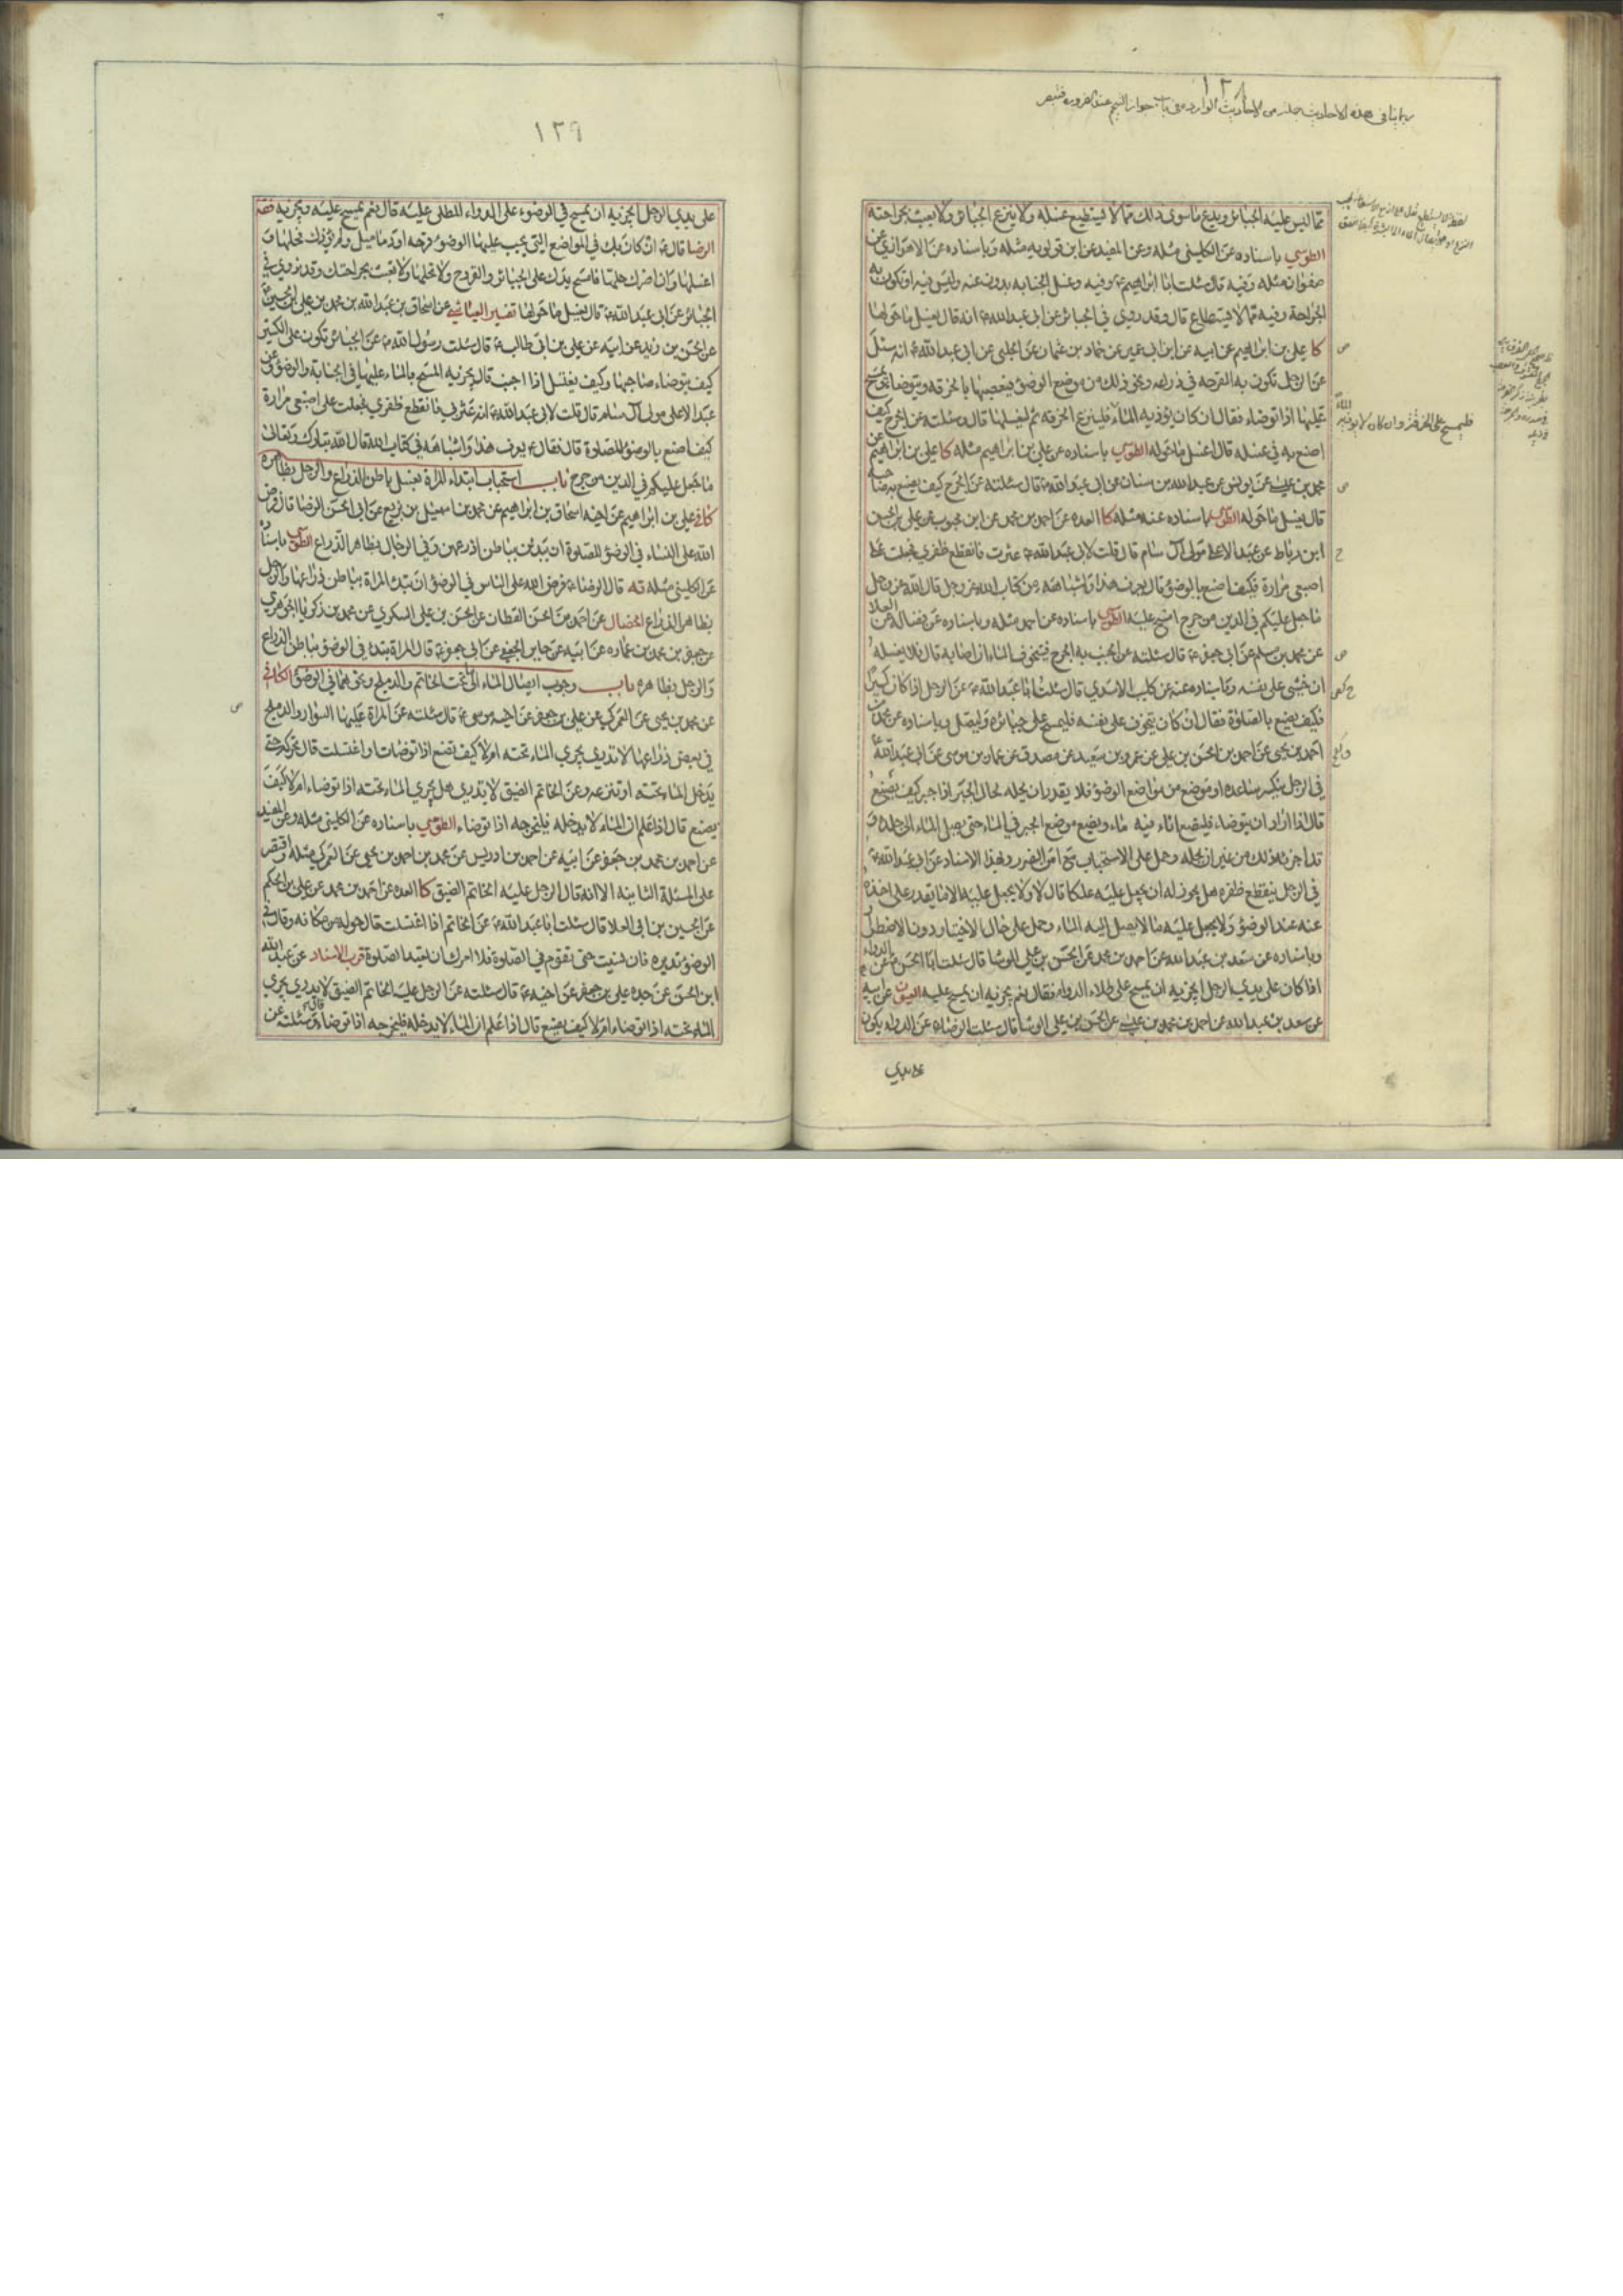 ١٣٨
مما ليس عليه الجبائر ويدع ما سوى ذلك مما لا يستطيع غسله ولا ينزع الجبائر ولا يعبث بجراحته
الطوسي باسناده عن الكليني مثله وعن المفيد عن ابن قولويه مثله وباسناده عن الاهوازي عن
صفوان مثله وفيه قال سئلت ابا ابراهيم ع وفيه وغسل الجنابة بدون عنه وليس فيه او تكون به
الجراحة وفيه مما لا يستطاع قال وقد روي في الجبائر عن ابي عبد الله ع انه قال يغسل ما حولها
كا علي بن ابراهيم عن ابيه عن ابن ابي عمير عن حماد بن عثمان عن الحلبي عن ابي عبد الله ع انه سئل
عن الرجل تكون به القرحة في ذراعه ونحو ذلك من موضع الوضوء فيعصبها بالخرقة ويتوضأ ويمسح
عليها اذا توضاء فقال ان كان يؤذيه الماء فلينزع الخرقة ثم ليغسلها قال وسئلته عن الجرح كيف
فليمسح على الخرقة وان كان لا يوذيه الماء
اصنع به في غسله قال اغسل ما حوله الطوسي باسناده عن علي بن ابراهيم مثله كا علي بن ابراهيم عن
محمد بن عيسى عن يونس عن عبد الله بن سنان عن ابي عبد الله ع قال سئلته عن الجرح كيف يصنع به صاحبه
قال يغسل ما حوله الطوسي باسناده عنه مثله كا العده عن احمد بن محمد عن ابن محبوب عن علي بن الحسن
ابن رباط عن عبد الاعلى مولى آل سام قال قلت لابي عبد الله ع عثرت فانقطع ظفري فجعلت على
اصبعي مرارة فكيف اصنع بالوضوء قال يعرف هذا واشباهه من كتاب الله عز وجل قال الله عز وجل
ما جعل عليكم في الدين من حرج امسح عليه الطوسي باسناده عن احمد مثله وباسناده عن فضالة عن العلا
عن محمد بن مسلم عن ابي جعفر ع قال سئلته عن الجنب به الجرح فيتخوف الماء ان اصابه قال فلا يغسله
ان خشي على نفسه وباسناده عنه عن كليب الاسدي قال سئلت ابا عبد الله ع عن الرجل اذا كان كسيرا
فكيف يصنع بالصلوة فقال ان كان يتخوف على نفسه فليمسح على جبائره وليصل وباسناده عن محمد بن
احمد بن يحيى عن احمد بن الحسن بن علي عن عمرو بن سعيد عن مصدق عن عمار بن موسى عن ابي عبد الله ع
في الرجل ينكسر ساعده او موضع من مواضع الوضوء فلا يقدر ان يحله لحال الجبر اذا جبر كيف يصنع
قال اذا اراد ان يتوضاء فليضع اناء فيه ماء ويضع موضع الجبر في الماء حتى يصل الماء الى جلده و
قد اجزءه ذلك من غير ان يحله وحمل على الاستحباب مع امن الضرر وبهذا الاسناد عن ابي عبد الله ع
في الرجل ينقطع ظفره هل يجوز له ان يجعل عليه علكا قال لا ولا يجعل عليه الا ما يقدر على اخذه
عنه عند الوضوء ولا يجعل عليه ما لا يصل اليه الماء وحمل على حال الاختيار دون الاضطرار
وباسناده عن سعد بن عبد الله عن احمد بن محمد عن الحسن بن علي الوشا قال سئلت ابا الحسن ع عن الدواء
اذا كان على يدي الرجل ايجزيه ان يمسح على طلاء الدواء فقال نعم يجزيه ان يمسح عليه العيون عن ابيه
عن سعد بن عبد الله عن احمد بن محمد بن عيسى عن الحسن بن علي الوشا قال سئلت الرضا ع عن الدواء يكون
على يدي
١٣٩
على يدي الرجل ايجزيه ان يمسح في الوضوء على الدواء المطلى عليه قال نعم يمسح عليه ويجزيه فقه
الرضا قال ع ان كان بك في المواضع التي يجب عليها الوضوء قرحة او دماميل ولم يؤذك فحلها و
اغسلها وان اضرك حلها فامسح يدك على الجبائر والقروح ولا تحلها ولا تعبث بجراحتك وقد نروي في
الجبائر عن ابي عبد الله ع قال يغسل ما حولها تفسير العياشي عن اسحاق بن عبد الله بن محمد بن علي بن الحسين
عن الحسن بن زيد عن ابيه عن علي بن ابي طالب ع قال سئلت رسول الله ص عن الجبائر تكون على الكسير
كيف يتوضاء صاحبها وكيف يغتسل اذا اجنب قال يجزيه المسح بالماء عليها في الجنابة والوضوء وعن
عبد الاعلى مولى آل سام قال قلت لابي عبد الله ع انه عثر بي فانقطع ظفري فجعلت على اصبعي مرارة
كيف اصنع بالوضوء للصلوة قال فقال ع يعرف هذا واشباهه في كتاب الله قال الله تبارك وتعالى
ما جعل عليكم في الدين من حرج باب استحباب ابتداء المراة بغسل باطن الذراع والرجل بظاهره
كافي علي بن ابراهيم عن اخيه اسحاق بن ابراهيم عن محمد بن اسمعيل بن بزيع عن ابي الحسن الرضا قال فرض
الله على النساء في الوضوء للصلوة ان يبدئن بباطن اذرعهن وفي الرجال بظاهر الذراع الطوسي باسناده
عن الكليني مثله قه قال الرضا ع فرض الله على الناس في الوضوء ان تبدء المراة بباطن ذراعها والرجل
بظاهر الذراع الخصال عن احمد بن الحسن القطان عن الحسن بن علي السكري عن محمد بن زكريا الجوهري
عن جعفر بن محمد بن عماره عن ابيه عن جابر الجعفي عن ابي جعفر ع قال المراة تبتدء في الوضوء بباطن الذراع
والرجل بظاهره باب وجوب ايصال الماء الى تحت الخاتم والدملج ونحوهما في الوضوء الكافي
عن محمد بن يحيى عن العمركي عن علي بن جعفر عن اخيه موسى ع قال سئلته عن المراة عليها السوار والدملج
في بعض ذراعها لا تدري يجري الماء تحته ام لا كيف تصنع اذا توضات او اغتسلت قال تحركه حتى
يدخل الماء تحته او تنزعه وعن الخاتم الضيق لا يدري هل يجري الماء تحته اذا توضاء ام لا كيف
يصنع قال اذا علم ان الماء لا يدخله فليخرجه اذا توضاء الطوسي باسناده عن الكليني مثله وعن المفيد
عن احمد بن محمد بن جعفر عن ابيه عن احمد بن ادريس عن محمد بن احمد بن يحيى عن العمركي مثله واقتصر
على المسئلة الثانية الا انه قال الرجل عليه الخاتم الضيق كا العده عن احمد بن محمد عن علي بن الحكم
عن الحسين بن ابي العلا قال سئلت ابا عبد الله ع عن الخاتم اذا اغتسلت قال حوله من مكانه وقال في
الوضوء تديره فان نسيت حتى تقوم في الصلوة فلا امرك ان تعيد الصلوة قرب الاسناد عن عبد الله
ابن الحسن عن جده علي بن جعفر عن اخيه ع قال سئلته عن الرجل عليه الخاتم الضيق لا يدري يجري
الماء تحته اذا توضاء ام لا كيف يصنع قال اذا علم ان الماء لا يدخله فليخرجه اذا توضاء قال وسئلته عن